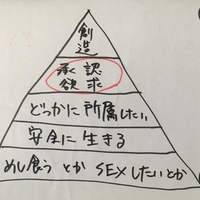 創
造
承認
欲求
どっかに所属したい
安全に生きる
めし食うとかSEXしたいとか